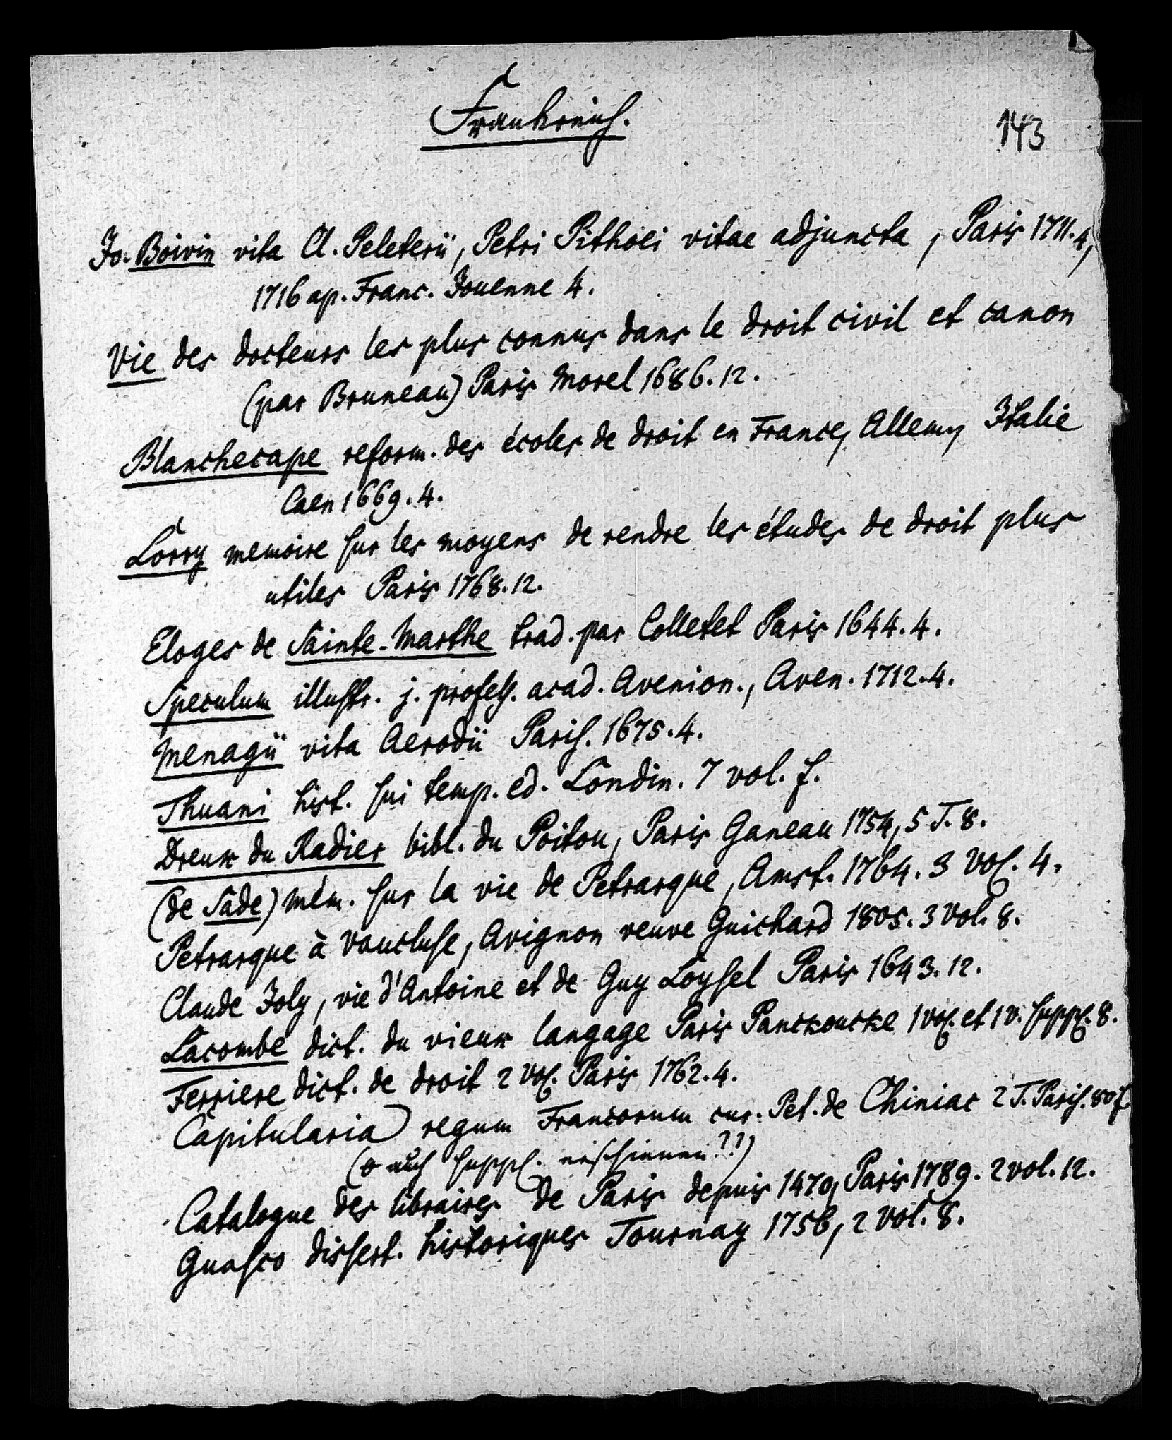 Frankreich.
143
Jo. Boivin vita Cl. Peleterii, Petri Pithoei vitae adjuncta, Paris 1711. 4,
1716 ap. Franc. Jouenne 4.
Vie des docteurs les plus connus dans le droit civil et canon
(par Bruneau) Paris Morel 1686. 12.
Blanchecape reform. des écoles de droit en France, Allem., Italie
Caen 1669. 4.
Lorry memoire sur les moyens de rendre les études de droit plus
utiles Paris 1768. 12.
Eloges de Sainte-Marthe trad. par Colletet Paris 1644. 4.
Speculum illustr. j. profess. acad. Avenion., Aven. 1712. 4.
Menagii vita Aerodii Paris. 1675. 4.
Thuani hist. sui temp. ed. Londin. 7 vol. f.
Dreux du Radier bibl. du Poitou, Paris Ganeau 1754, 5 T. 8.
(de Sade) mém. sur la vie de Petrarque, Amst. 1764. 3 vol. 4.
Petrarque à Vaucluse, Avignon veuve Guichard 1805. 3 vol. 8.
Claude Joly, vie d'Antoine et de Guy Loysel Paris 1643. 12.
Lacombe dict. du vieux langage Paris Panckoucke 1 vol. et 1 v. suppl. 8.
Ferriere dict. de droit 2 vol. Paris 1762. 4.
Capitularia regum Francorum cur. Pet. de Chiniac 2 T. Paris. 80 f.
(o auch suppl. erschienen??)
Catalogue des libraires de Paris depuis 1470, Paris 1789. 2 vol. 12.
Guasco dissert. historiques Tournay 1756, 2 vol. 8.